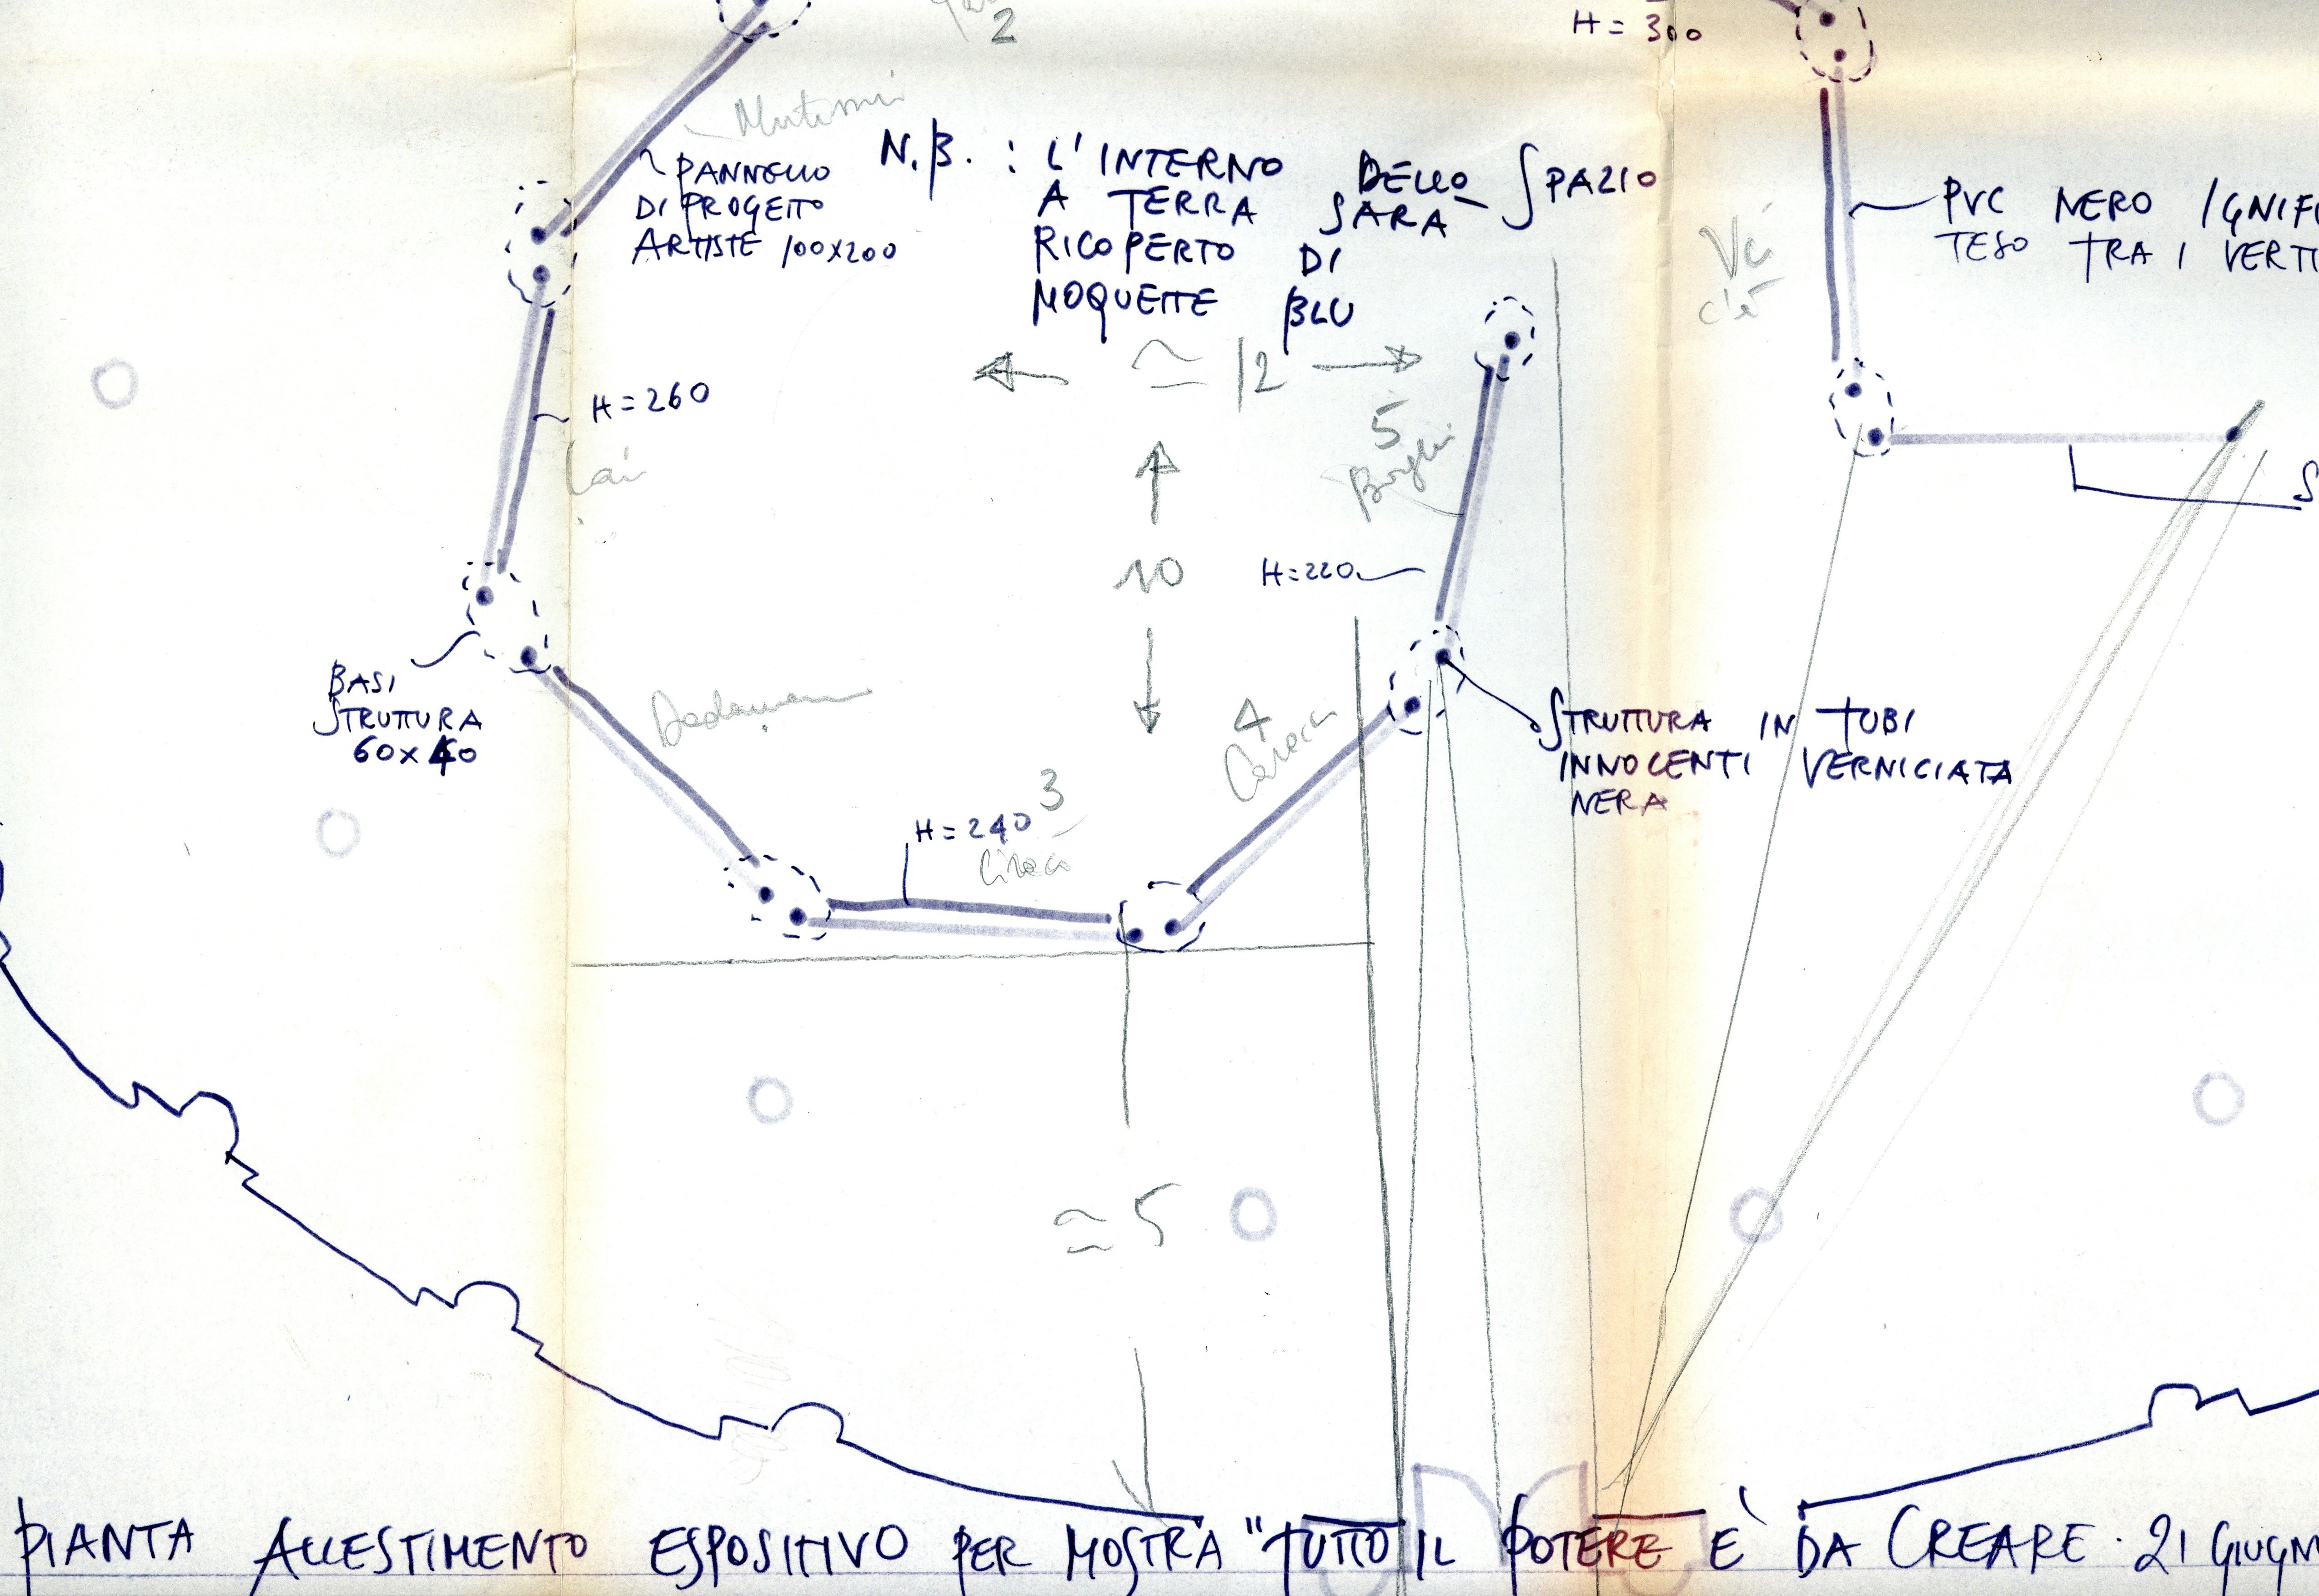 2
H = 300
N.B. : L'INTERNO DELLO SPAZIO
A TERRA SARA
RICOPERTO DI
MOQUETTE BLU
PANNELLO
DI PROGETTO
ARTISTE 100x200
PVC NERO IGNIF
TESO TRA I VERTI
≃ 12
H = 260
Lai
5
10
H=220
BASI
STRUTTURA
60x40
4
STRUTTURA IN TUBI
INNOCENTI VERNICIATA
NERA
3
H = 240
≃ 5
PIANTA ALLESTIMENTO ESPOSITIVO PER MOSTRA "TUTTO IL POTERE È DA CREARE. 21 GIUGN